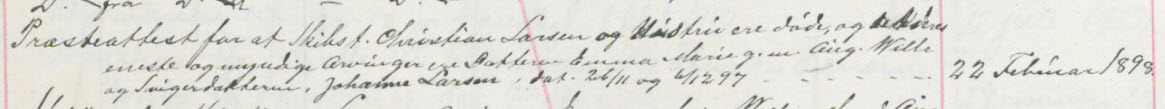 Præsteattest for at Skibst. Christian Larsen og Hustru ere døde, og at deres
eneste og myndige Arvinger ere Datteren Emma Marie g. m. Aug. Wille
og Svigerdatteren, Johanne Larsen, dat. 26/11 og 6/12 97 - - - - - - - 22 Februar 1898.